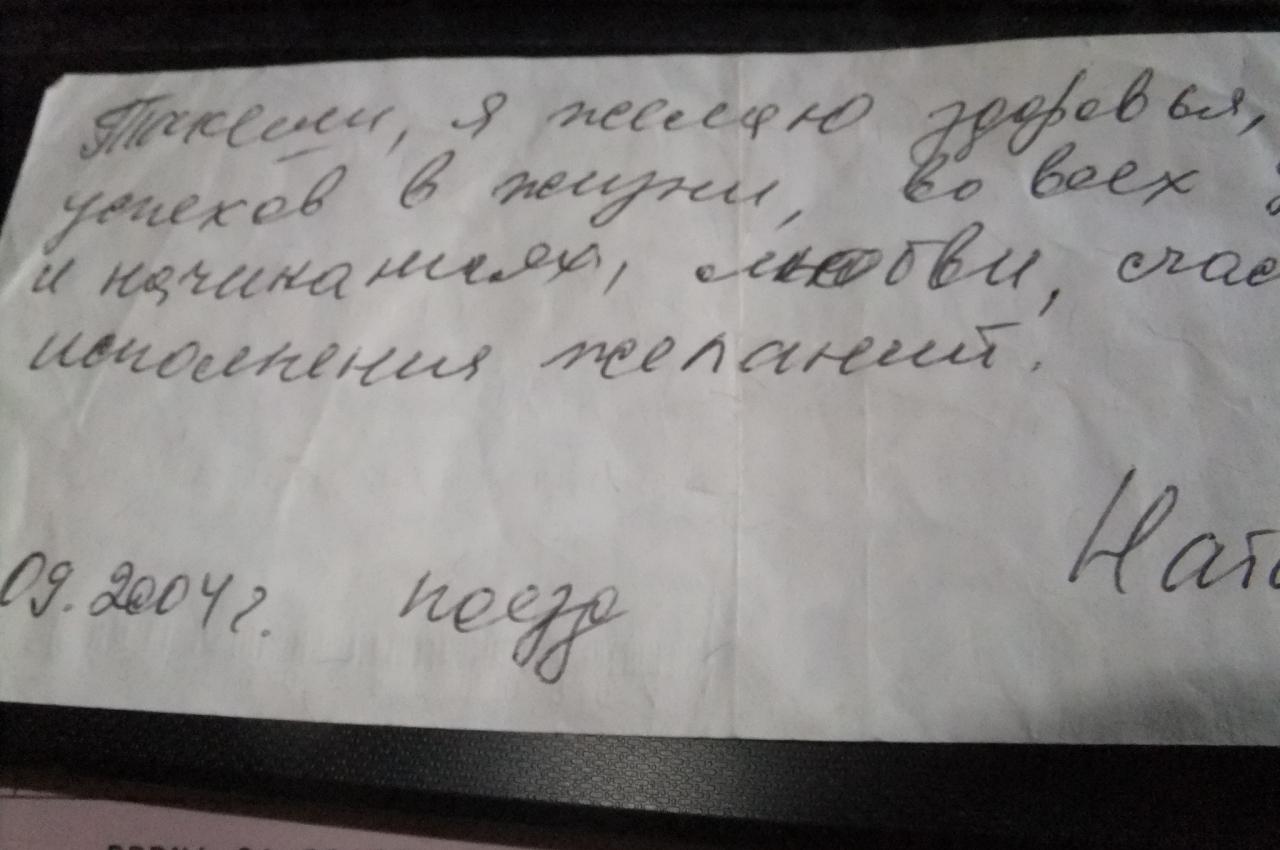 Такеши, я желаю здоровья,
успехов в жизни, во всех
и начинаниях, любви, счас
исполнения желаний.
Ната
09.2004 г. поезд